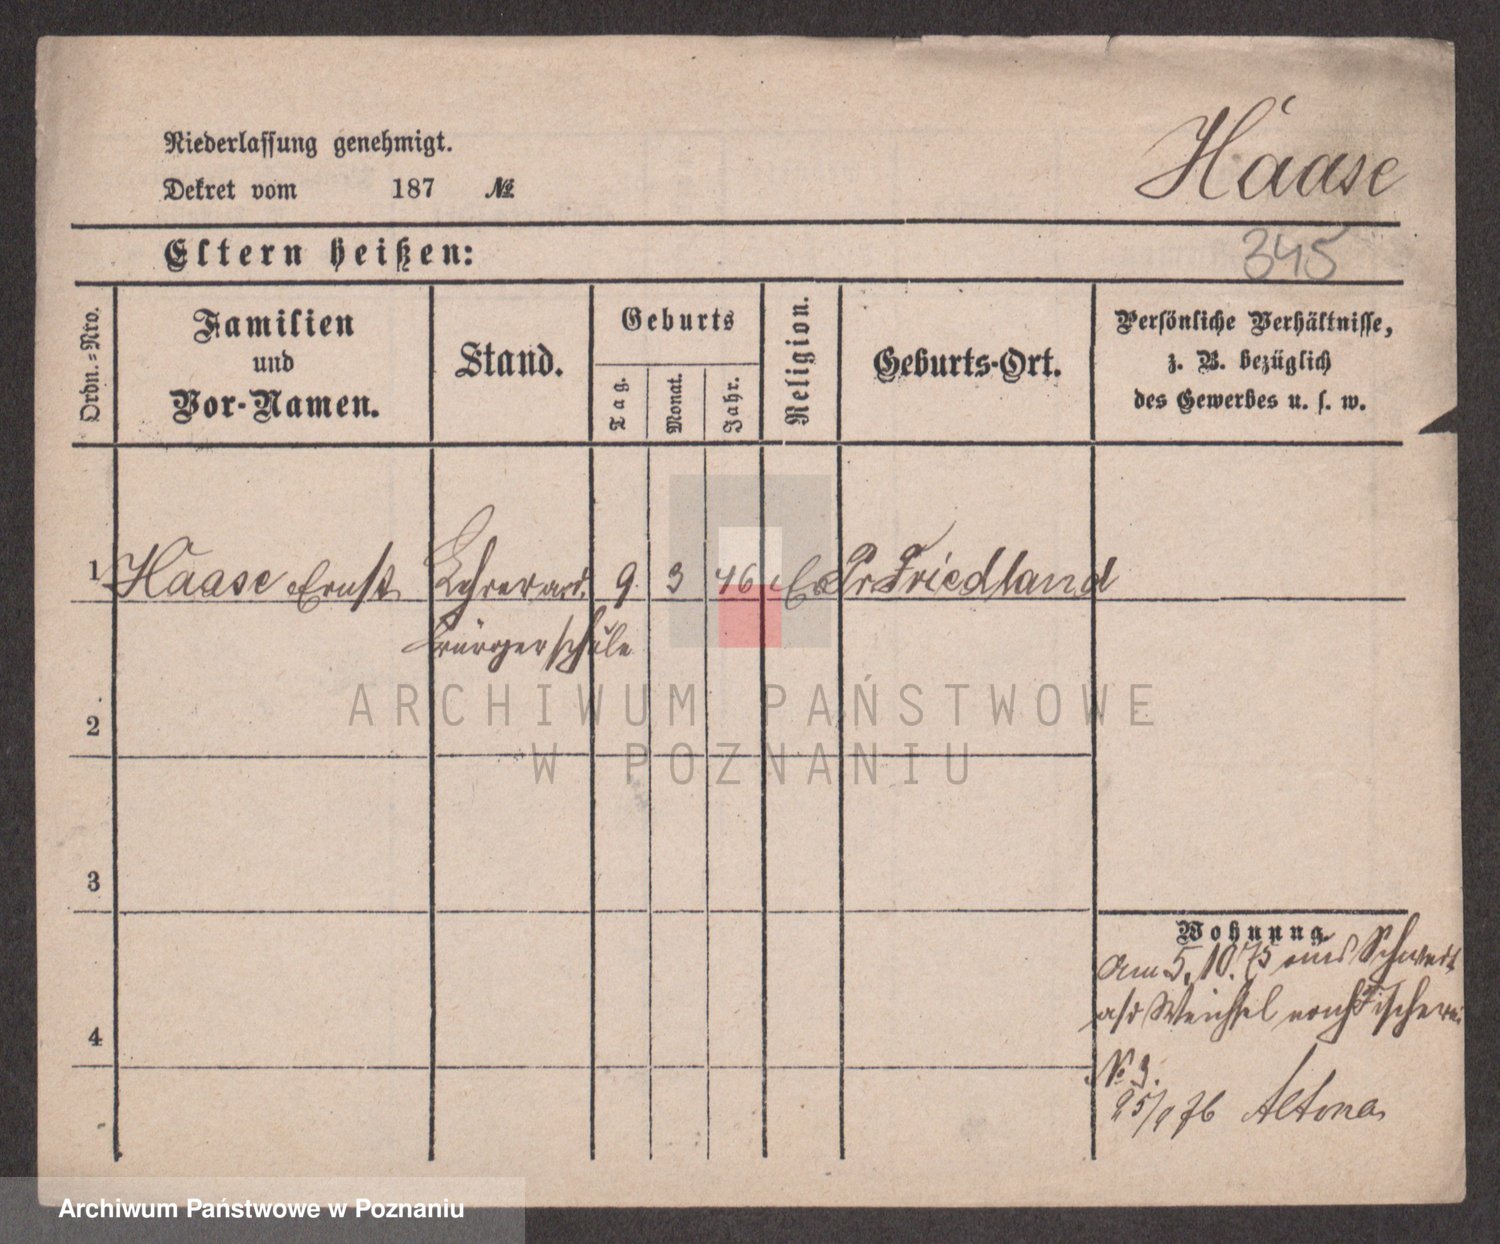 Niederlassung genehmigt.
Dekret vom 187 №
Haase
345
Eltern heißen:
Ordn.=Nro.
Familien
und
Vor-Namen.
Stand.
Geburts
Tag.
Monat.
Jahr.
Religion.
Geburts-Ort.
Persönliche Verhältnisse,
z. B. bezüglich
des Gewerbes u. s. w.
1 Haase Ernst Lehrer a. d. 9 3 46 Ev Pr. Friedland
Bürgerschule
2
3
4
Wohnung
Am 5. 10. 75 aus Schwetz
a/d Weichsel nach Fischerei
No 3.
25/9 76 Altona
ARCHIWUM PAŃSTWOWE
W POZNANIU
Archiwum Państwowe w Poznaniu